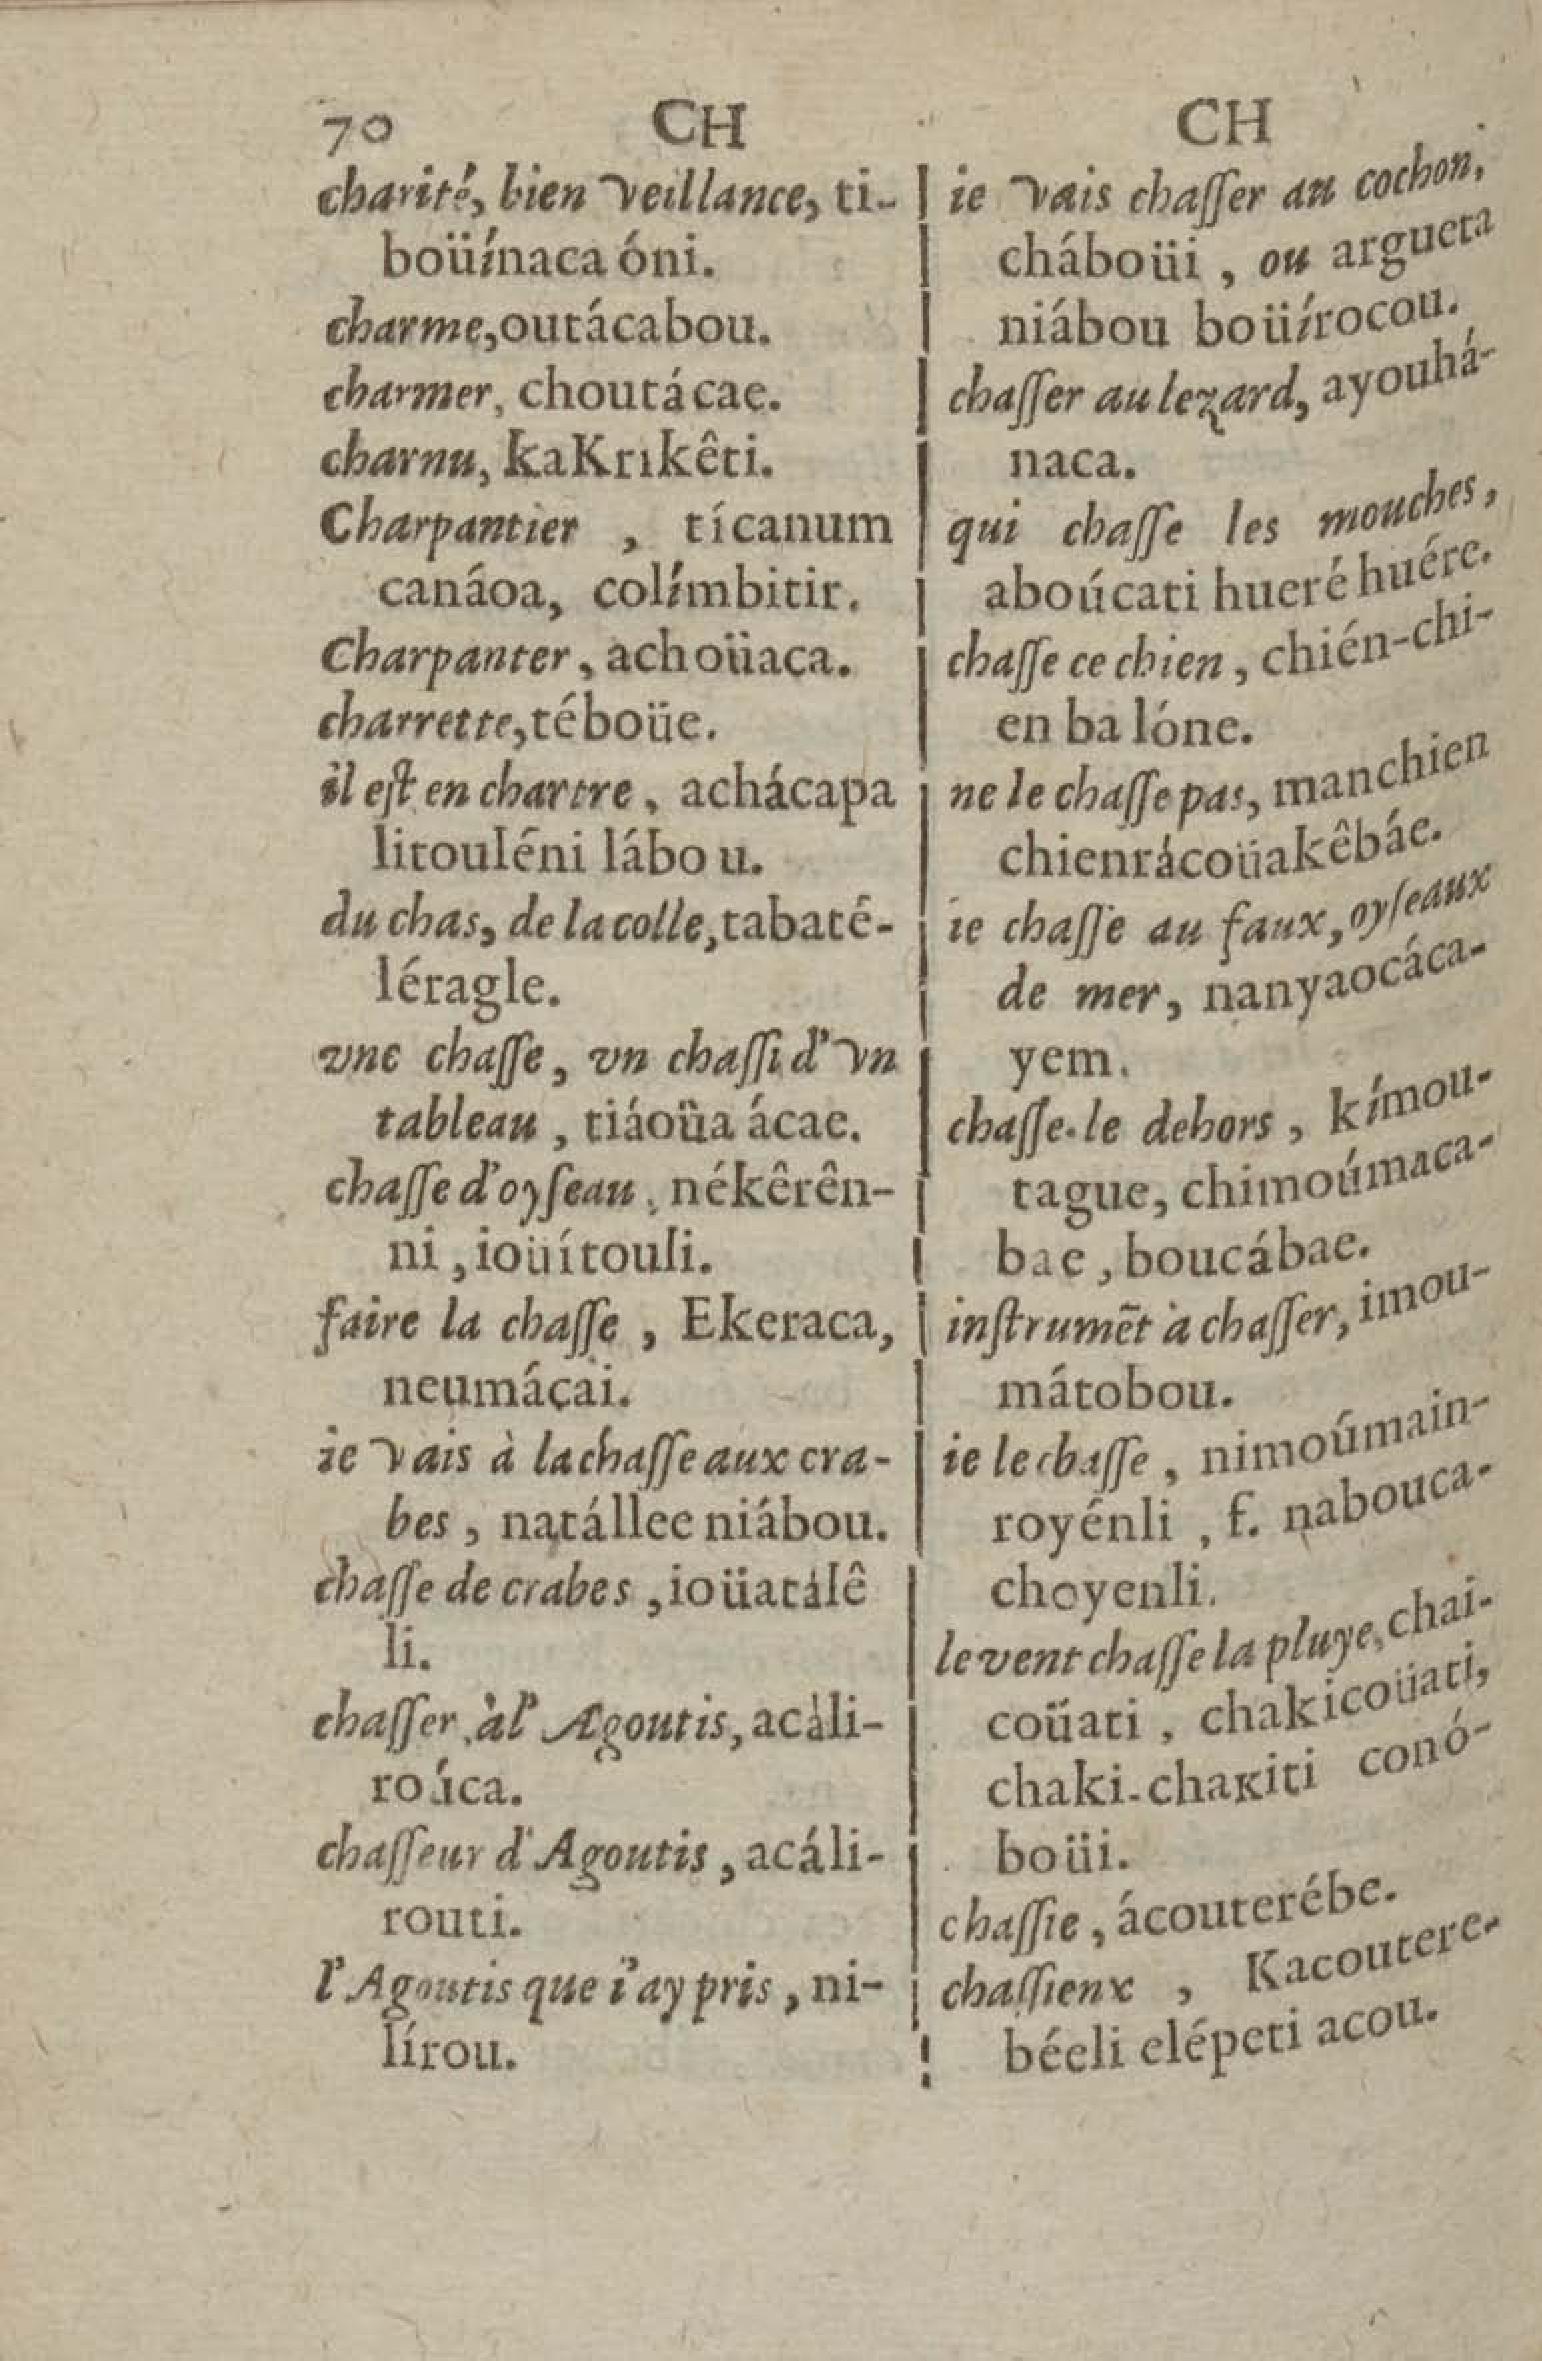 70 CH
charité, bien veillance, ti-
boüínaca óni.
charme, outácabou.
charmer, choutácae.
charnu, kaKrikêti.
Charpantier , tícanum
canáoa, colímbitir.
Charpanter, achoüaca.
charrette, téboüe.
il eſt en chartre, achácapa
litouléni lábou.
du chas, de la colle, tabaté-
léragle.
vne chaſſe, vn chaſſi d'vn
tableau, tiáoüa ácae.
chaſſe d'oyſeau, nékêrên-
ni, ioüítouli.
faire la chaſſe, Ekeraca,
neumáçai.
ie vais à la chaſſe aux cra-
bes, natállee niábou.
chaſſe de crabes, ioüatálê
li.
chaſſer à l'Ægoutis, acáli-
roúca.
chaſſeur d'Agoutis, acáli-
routi.
l'Agoutis que i'ay pris, ni-
lírou.
CH
ie vais chaſſer au cochon,
cháboüi, ou argueta
niábou boüírocou.
chaſſer au lezard, ayouhá-
naca.
qui chaſſe les mouches,
aboúcati hueré huére.
chaſſe ce chien, chién-chi-
en ba lóne.
ne le chaſſe pas, manchien
chienrácoüakêbáe.
ie chaſſe au faux, oyſeaux
de mer, nanyaocáca-
yem.
chaſſe-le dehors, kímou-
tague, chimoúmaca-
bae, boucábae.
inſtrumẽt à chaſſer, imou-
mátobou.
ie le chaſſe, nimoúmain-
royénli, f. nabouca-
choyenli.
le vent chaſſe la pluye, chai-
coüati, chakicoüati,
chaki-chaкiti conó-
boüi.
chaſſie, ácouterébe.
chaſſieux, Kacoutere-
béeli elépeti acou.